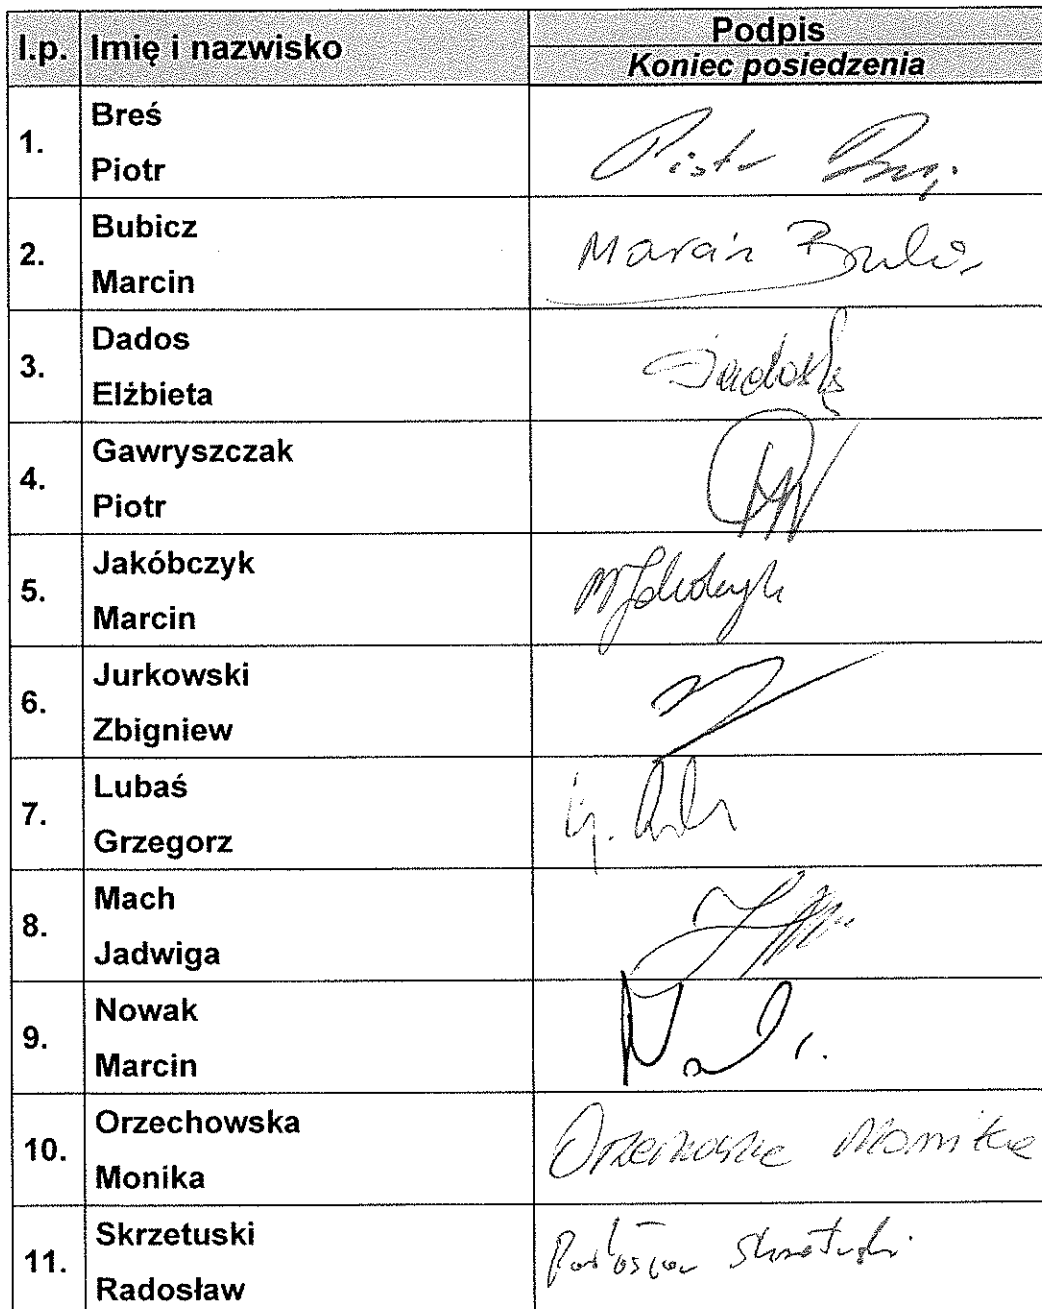 l.p. Imię i nazwisko Podpis
Koniec posiedzenia
1. Breś
Piotr
Piotr
2. Bubicz
Marcin
Marcin
3. Dados
Elżbieta
4. Gawryszczak
Piotr
5. Jakóbczyk
Marcin
6. Jurkowski
Zbigniew
7. Lubaś
Grzegorz
8. Mach
Jadwiga
9. Nowak
Marcin
10. Orzechowska
Monika
Monika
11. Skrzetuski
Radosław
Radosław Skrzetuski